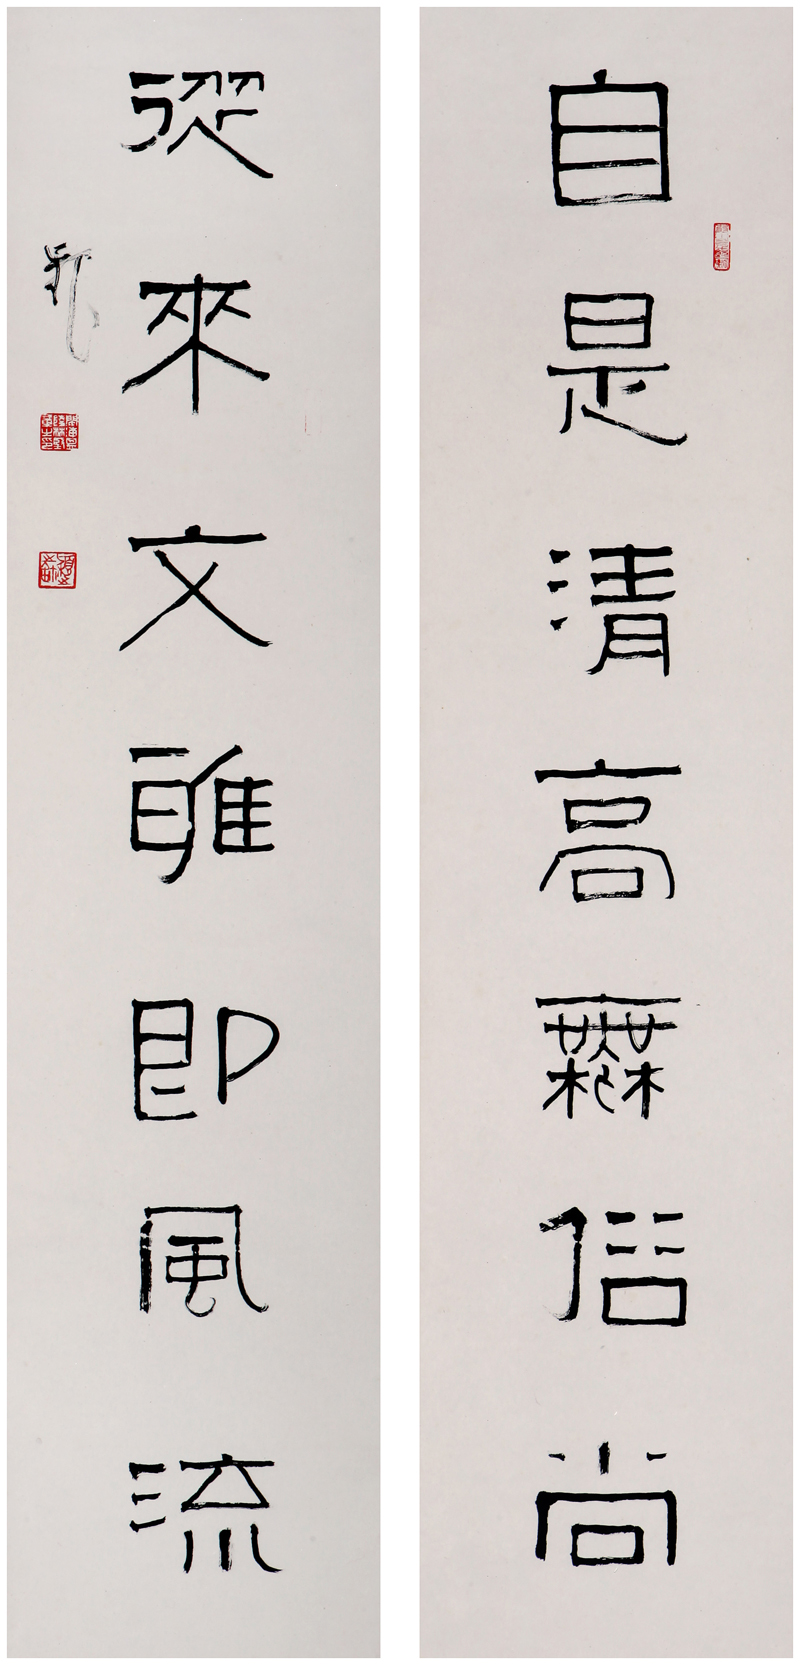 自是清高無俗尚
從來文雅即風流